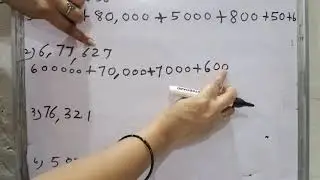 80,000+5000+800+50+6
2) 6,77,627
600000+70,000+7000+600
3) 76,321
4) 50